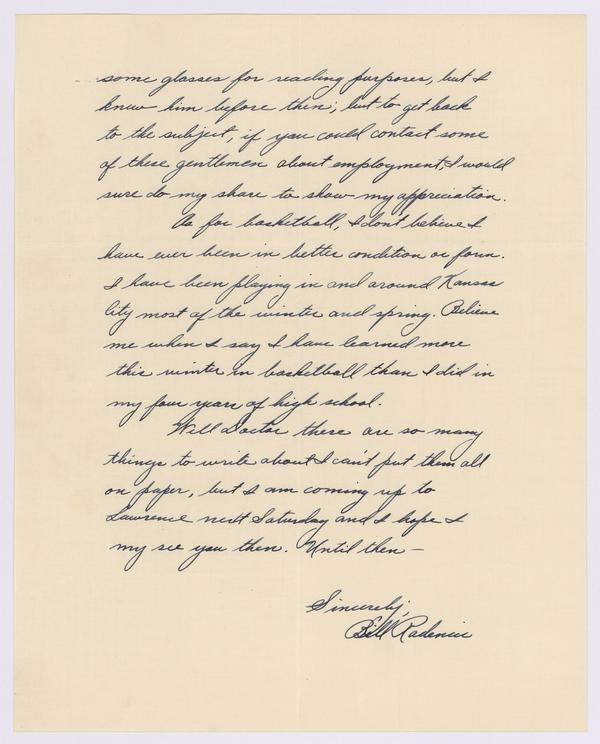 some glasses for reading purposes, but I
knew him before then; but to get back
to the subject, if you could contact some
of these gentlemen about employment, I would
sure do my share to show my appreciation.
As for basketball, I don't believe I
have ever been in better condition or form.
I have been playing in and around Kansas
City most of the winter and spring. Believe
me when I say I have learned more
this winter in basketball than I did in
my four years of high school.
Well Doctor there are so many
things to write about I can't put them all
on paper, but I am coming up to
Lawrence next Saturday and I hope I
my see you then. Until then —
Sincerely,
Bill Radenic